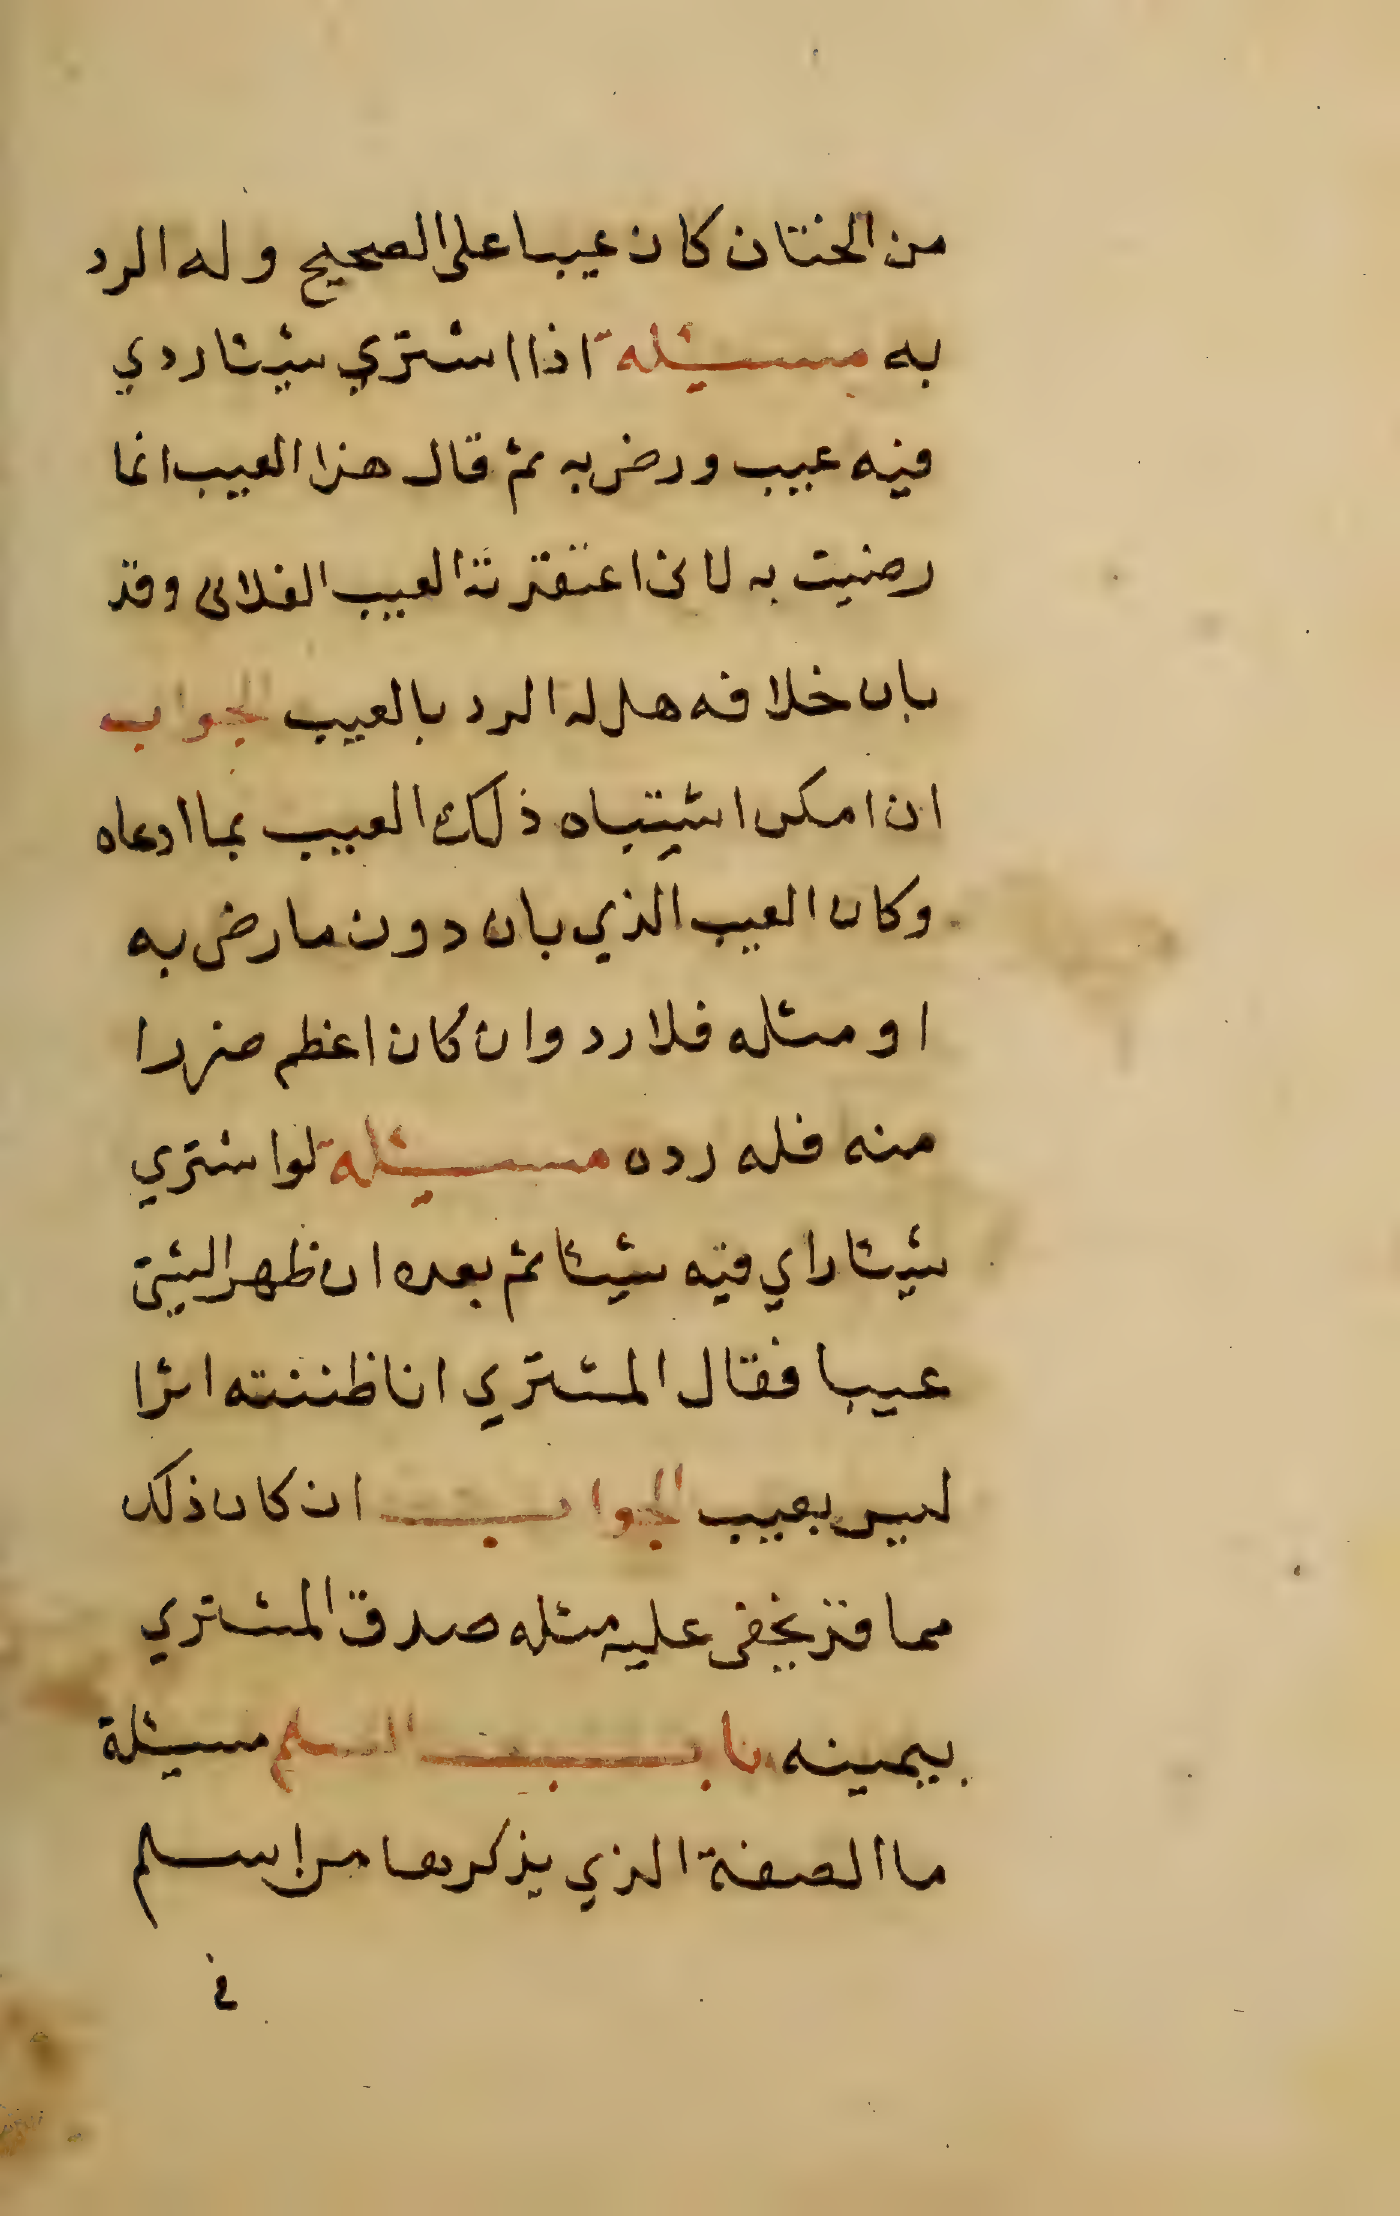 من الختان كان عيبا على الصحيح وله الرد
به مسئلة اذا اشتري شيئا ردي
فيه عيب ورض به ثم قال هذا العيب انما
رضيت به لانى اعتقدته العيب الفلانى وقد
بان خلافه هل له الرد بالعيب الجواب
ان امكن اشتباه ذلك العيب بما ادعاه
وكان العيب الذي بان دون ما رض به
او مثله فلا رد وان كان اعظم ضررا
منه فله رده مسئلة لو اشتري
شيئا راي فيه شيئا ثم بعده ان ظهر الشئ
عيبا فقال المشتري انا ظننته اثرا
ليس بعيب الجواب ان كان ذلك
مما قد يخفى عليه مثله صدق المشتري
بيمينه باب السلم مسئلة
ما الصفة الذي يذكرها من اسلم
في